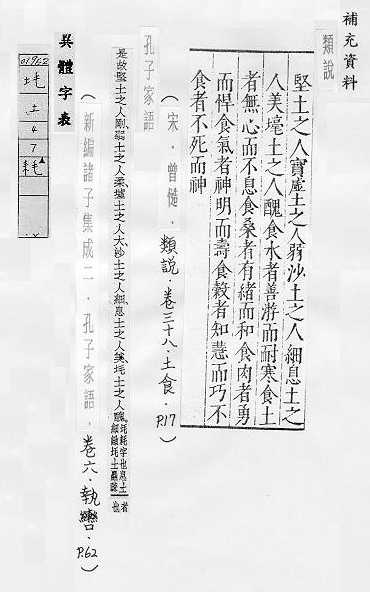 補充資料
類說
堅土之人實虛土之人弱沙土之人細息土之
人美壕土之人醜食水者善游而耐寒食土
者無心而不息食桑者有緒而和食肉者勇
而悍食氣者神明而壽食穀者知慧而巧不
食者不死而神
(宋‧曾慥‧類說‧卷三十八‧土食‧P.17)
孔子家語
是故堅土之人剛,弱土之人柔,墟土之人大,沙土之人細,息土之人美,土之人醜。耗字也息土細緻土麤疎者也
(新編諸子集成二‧孔子家語,卷六‧執轡‧P.62)
異體字表
01962
土
4
7
耗▲